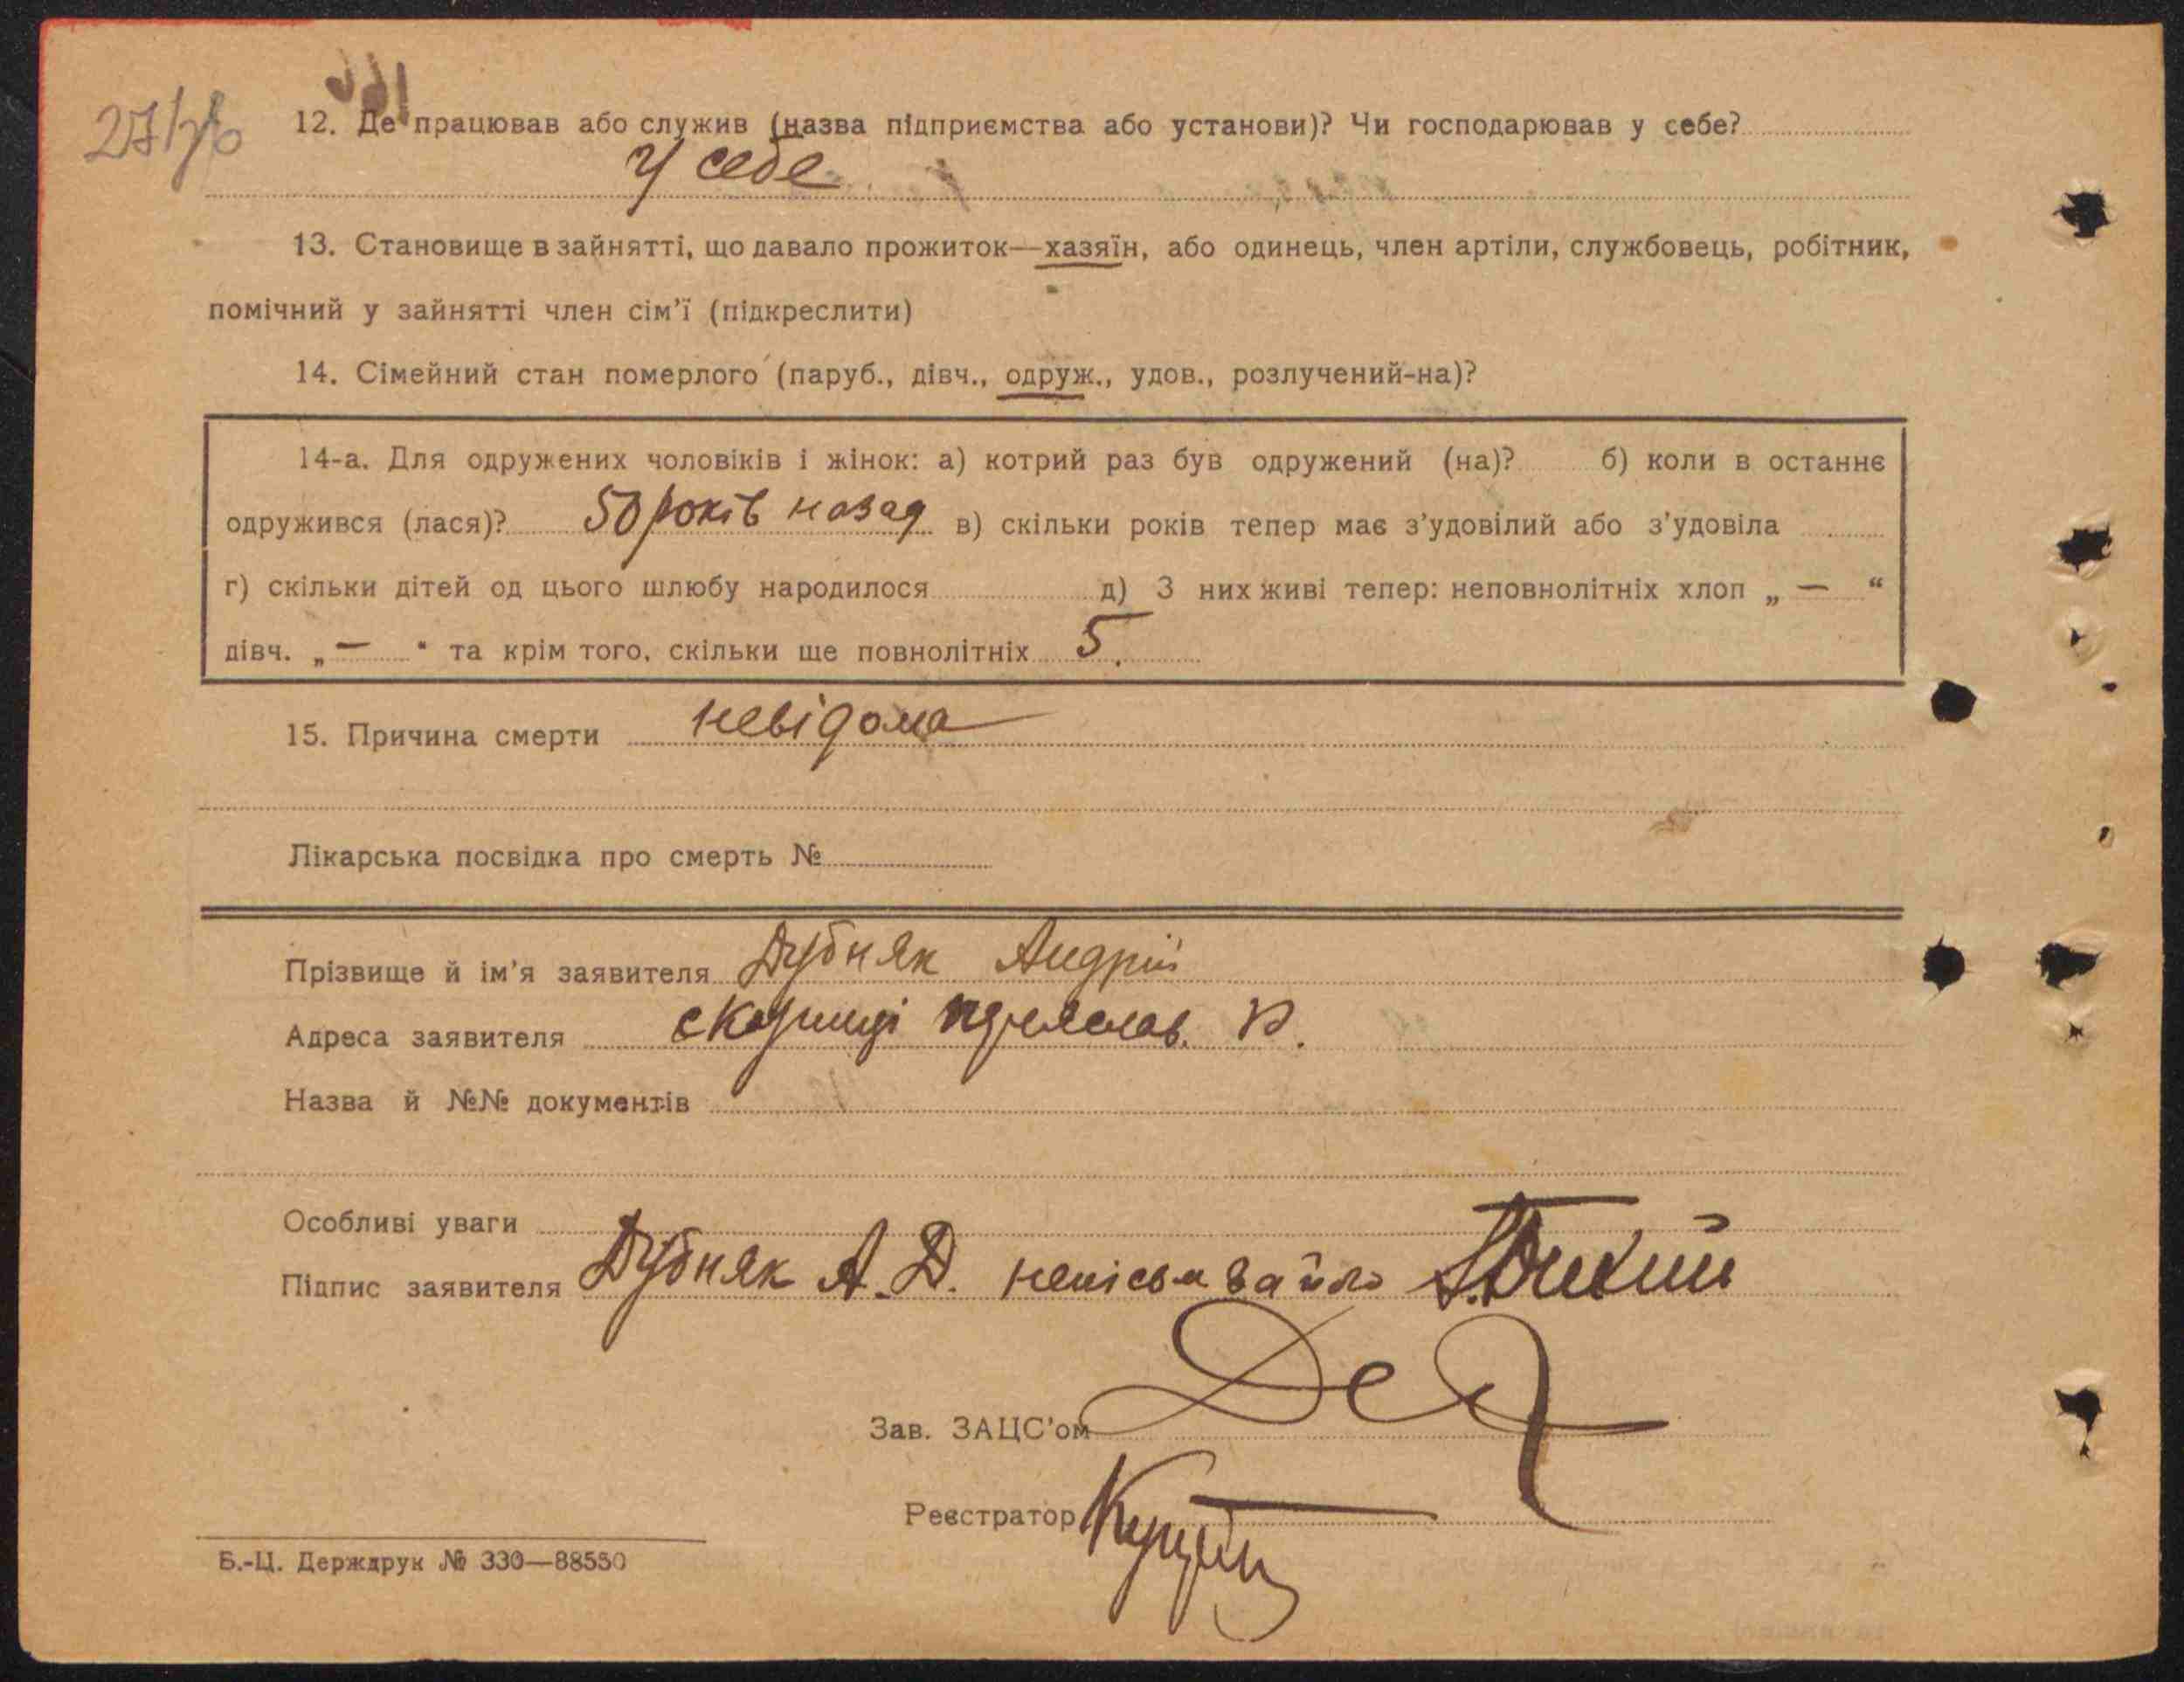 12. Де працював або служив (назва підприємства або установи)? Чи господарював у себе?
У себе
13. Становище в зайнятті, що давало прожиток—хазяїн, або одинець, член артіли, службовець, робітник,
помічний у зайнятті член сім'ї (підкреслити)
14. Сімейний стан померлого (паруб., дівч., одруж., удов., розлучений-на)?
14-а. Для одружених чоловіків і жінок: а) котрий раз був одружений (на)? б) коли в останнє
одружився (лася)? 50 років назад в) скільки років тепер має з'удовілий або з'удовіла
г) скільки дітей од цього шлюбу народилося д) З них живі тепер: неповнолітніх хлоп „ — “
дівч. „ — “ та крім того, скільки ще повнолітніх 5.
15. Причина смерти невідома
Лікарська посвідка про смерть №
Прізвище й ім'я заявителя Дубняк Андрій
Адреса заявителя
Назва й №№ документів
Особливі уваги
Підпис заявителя Дубняк А. Д.
Зав. ЗАЦС'ом
Реєстратор
Б.-Ц. Держдрук № 330—88550